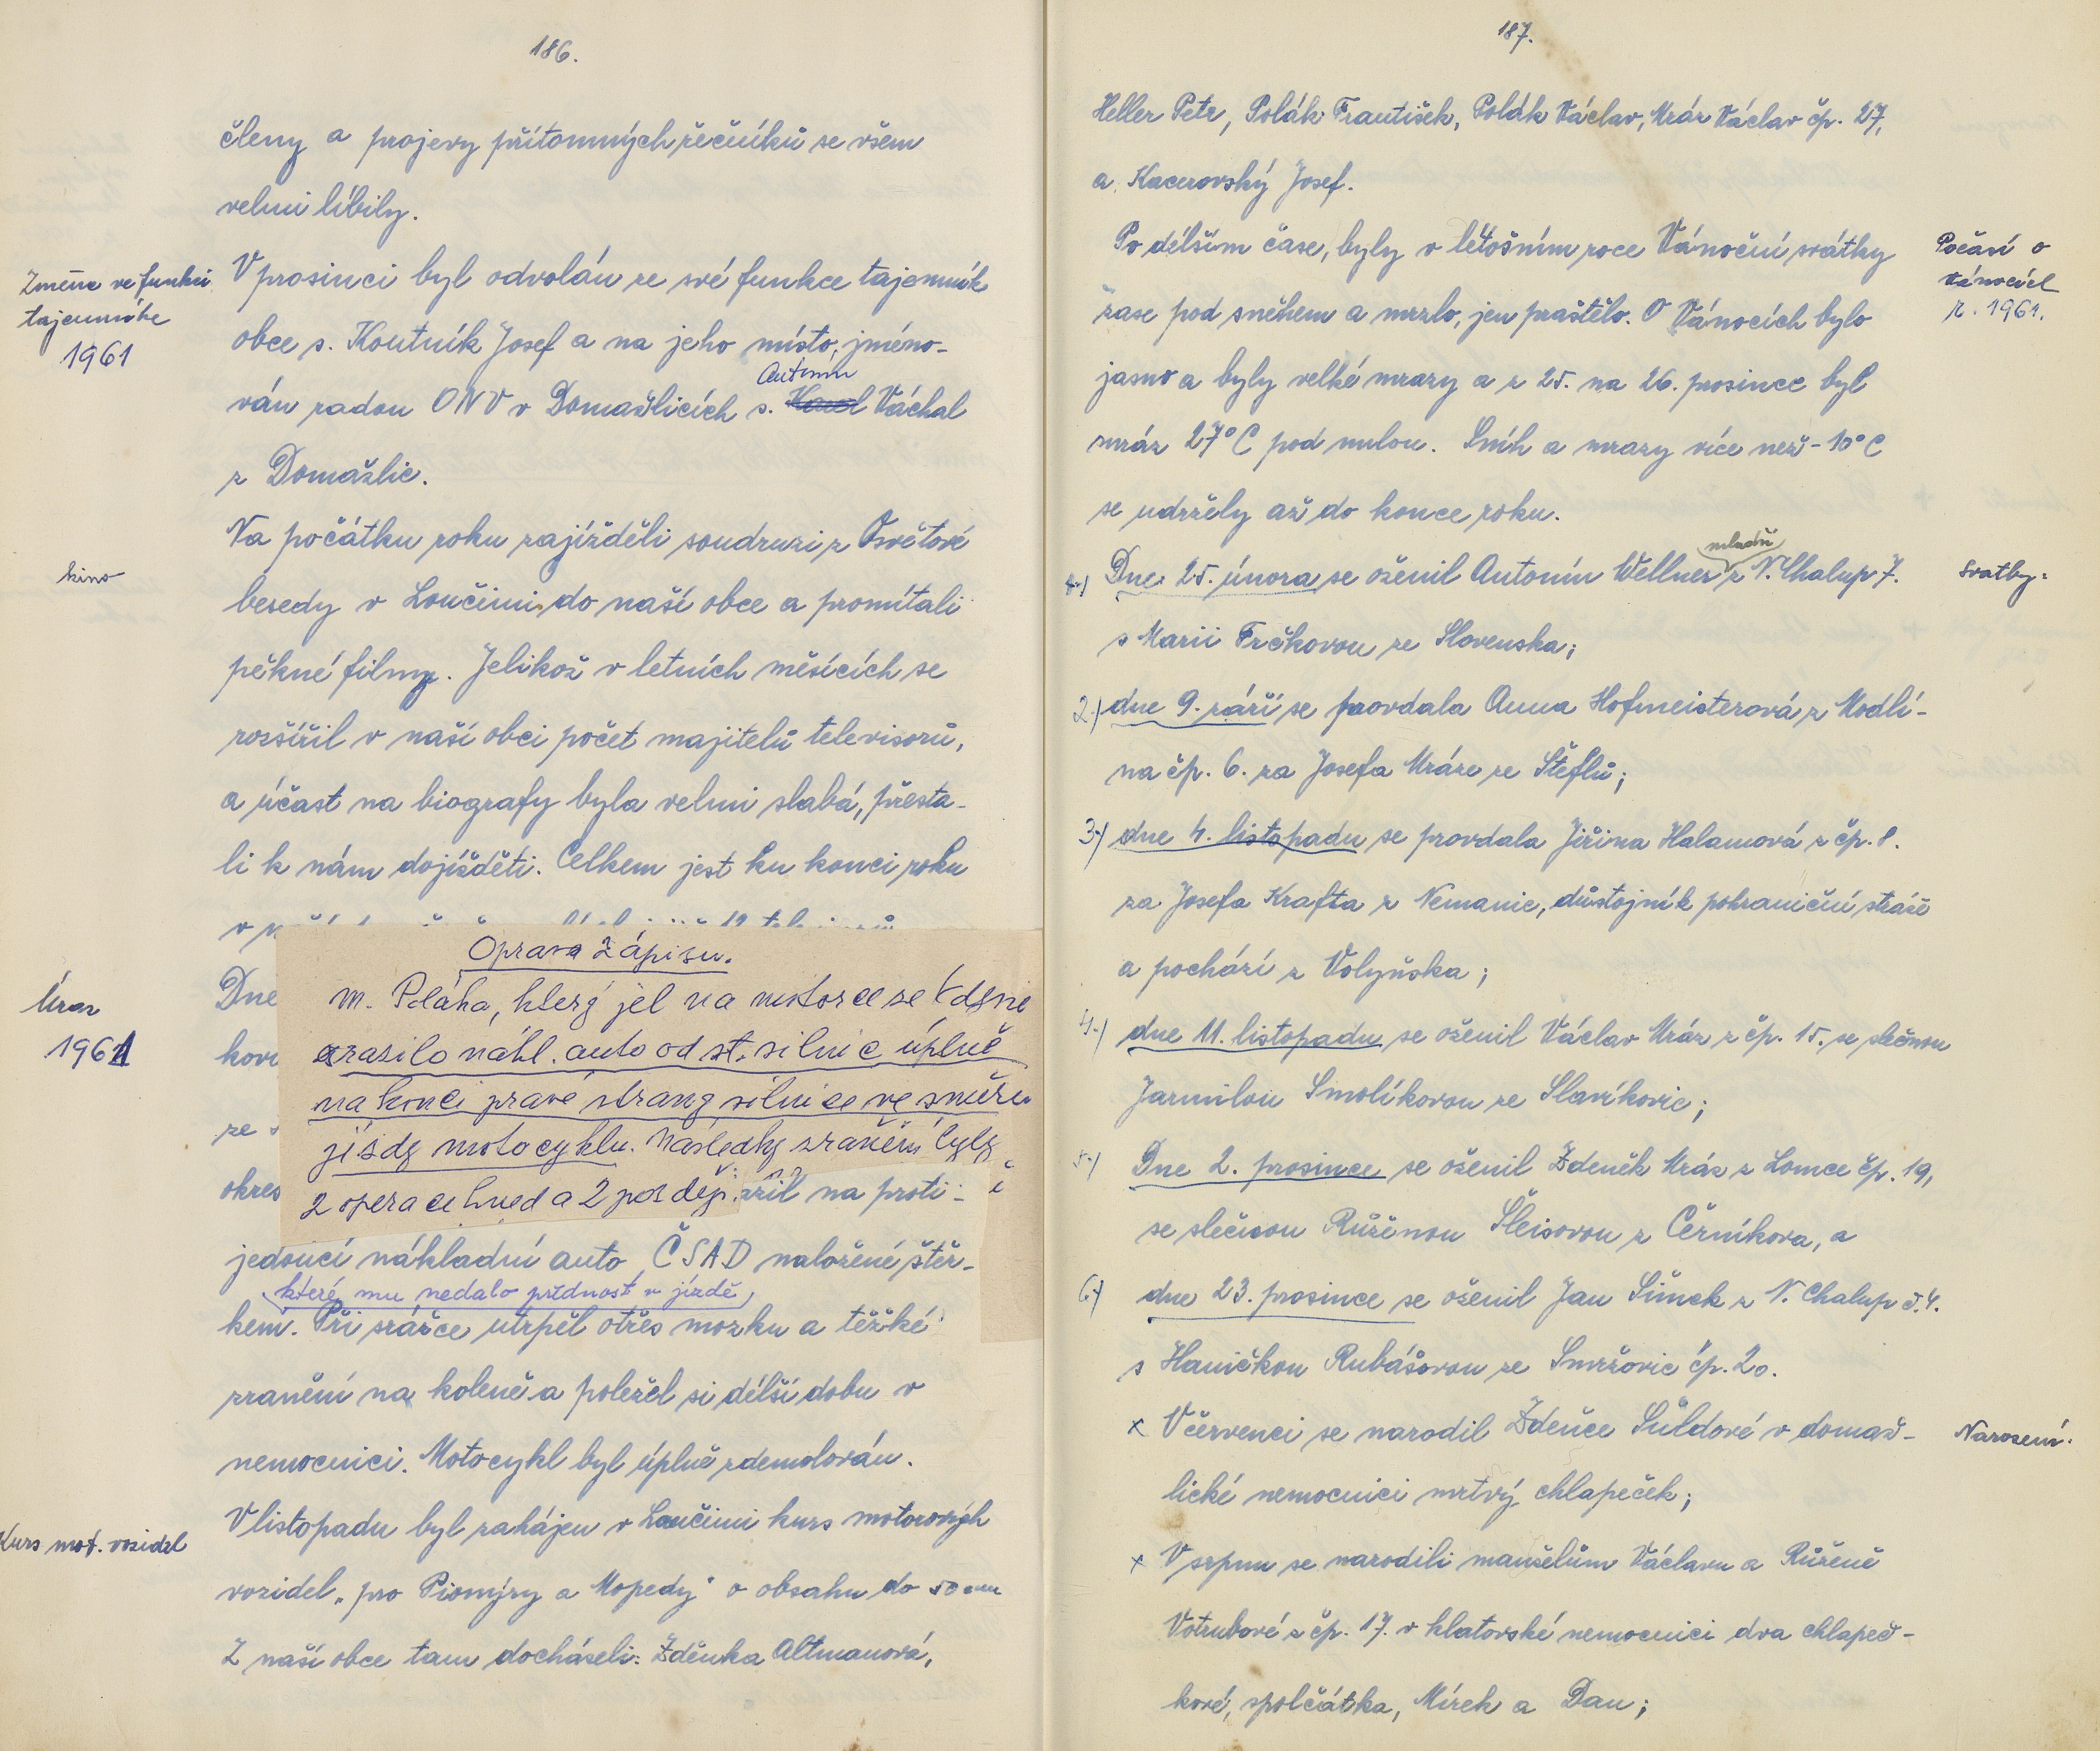 186.
členy a projevy přítomných řečníků se všem
velmi líbily.
Změna ve funkci
tajemníka
1961
V prosinci byl odvolán ze své funkce tajemník
obce s. Koutník Josef a na jeho místo, jméno-
Antonín
ván radou ONV v Domažlicích s. Karel Váchal
z Domažlic.
kino
Na počátku roku zajížděli soudruzi z Osvětové
besedy v Loučimi, do naší obce a promítali
pěkné filmy. Jelikož v letních měsících se
rozšířil v naší obci počet majitelů televisorů,
a účast na biografy byla velmi slabá, přesta-
li k nám dojížděti. Celkem jest ku konci roku
Oprava zápisu.
Úraz
1961
Dne
m. Poláka, který jel na motorce ze Kdyně
kovi
zrazilo nákl. auto od st. silnic úplně
na konci pravé strany silnice ve směru
ze s
jízdy motocyklu. Následky zranění byly
okres
2 operace hned a 2 později.
azil na proti-
jedoucí nákladní auto ČSAD naložené štěr-
(které mu nedalo přednost v jízdě)
kem. Při srážce utrpěl otřes mozku a těžké
zranění na koleně a poležel si delší dobu v
nemocnici. Motocykl byl úplně zdemolován.
Kurs mot. vozidel
V listopadu byl zahájen v Loučimi kurs motorových
vozidel „pro Pionýry a Mopedy" o obsahu do 50 ccm
Z naší obce tam docházeli: Zdeňka Altmanová,
187.
Heller Petr, Polák František, Polák Václav, Mráz Václav čp. 27,
a Kacerovský Josef.
Počasí o
Vánocích
r. 1961.
Po délším čase, byly v létošním roce Vánoční svátky
zase pod sněhem a mrzlo, jen praštělo. O Vánocích bylo
jasno a byly velké mrazy a z 25. na 26. prosince byl
mráz 27°C pod nulou. Sníh a mrazy více než -10°C
se udržely až do konce roku.
Svatby:
mladší
1.) Dne 25. února se oženil Antonín Wellner z N. Chalup 7.
s Marii Frčkovou ze Slovenska;
2.) dne 9. září se provdala Anna Hofmeisterová z Modlí-
na čp. 6. za Josefa Mráze ze Štěflů;
3.) dne 4. listopadu se provdala Jiřina Halamová z čp. 8.
za Josefa Krafta z Nemanic, důstojník pohraniční stráže
a pochází z Volyňska;
4.) dne 11. listopadu se oženil Václav Mráz z čp. 15. se slečnou
Jarmilou Smolíkovou ze Slavíkovic;
5.) Dne 2. prosince se oženil Zdeněk Mráz z Lomce čp. 19,
se slečnou Růženou Šleisovou z Černíkova, a
6.) dne 23. prosince se oženil Jan Šimek z N. Chalup č. 4.
s Haničkou Rubášovou ze Smržovic čp. 20.
Narození:
x V červenci se narodil Zdeňce Šůldové v domaž-
lické nemocnici mrtvý chlapeček;
x V srpnu se narodili manželům Václavu a Růženě
Votrubové z čp. 17. v klatovské nemocnici dva chlapeč-
kové, spolčátka, Mírek a Dan;